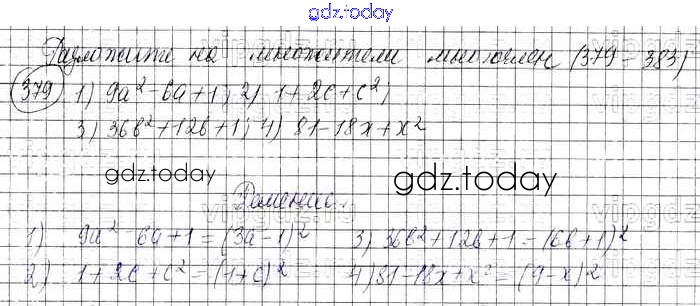 gdz.today
Разложите на множители многочлен (379 - 383)
379 1) 9a² - 6a + 1; 2) 1 + 2c + c²;
3) 36b² + 12b + 1; 4) 81 - 18x + x²
gdz.today gdz.today
Решение.
1) 9a² - 6a + 1 = (3a - 1)² 3) 36b² + 12b + 1 = (6b + 1)²
2) 1 + 2c + c² = (1 + c)² 4) 81 - 18x + x² = (9 - x)²